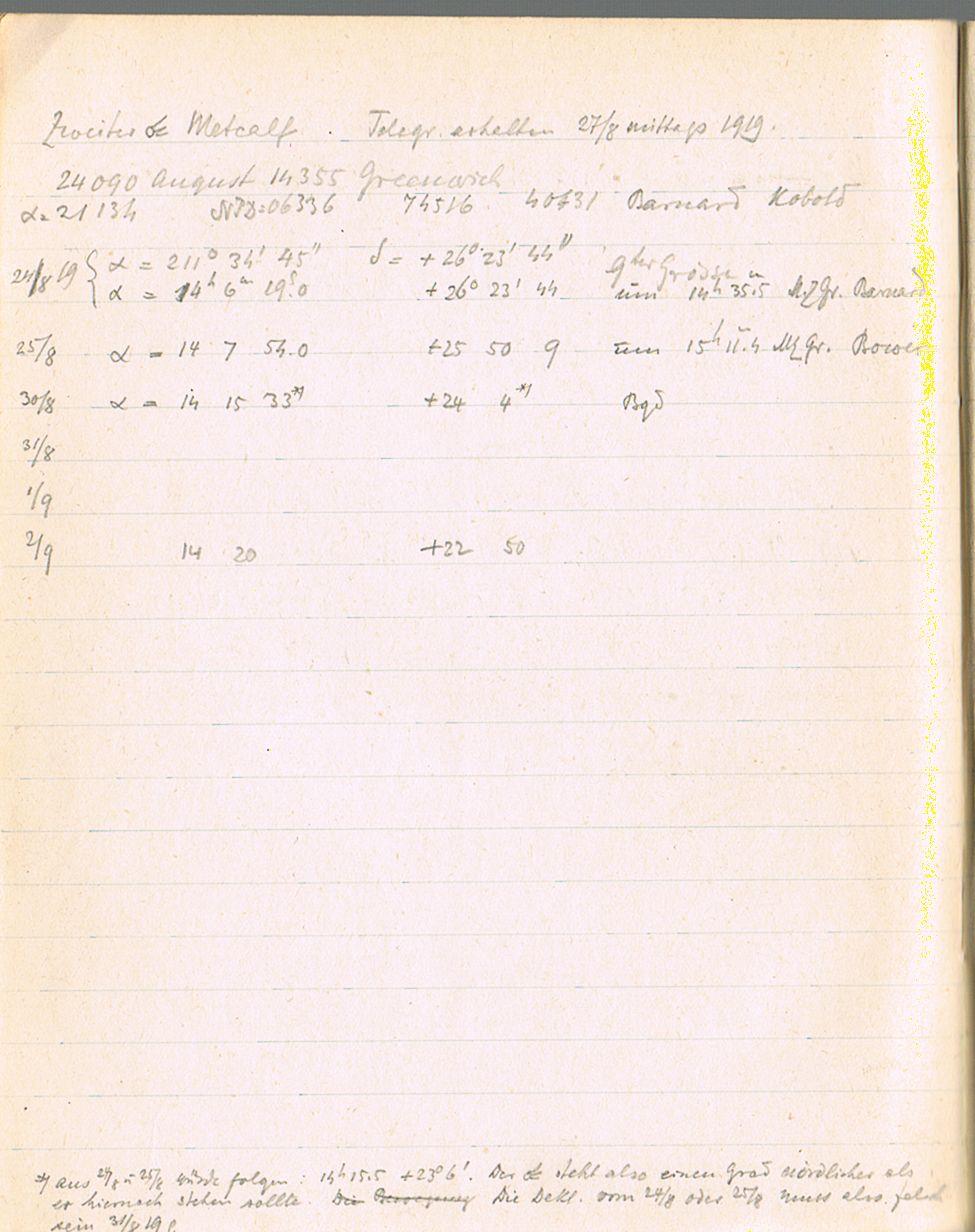 Zweiter ☄ Metcalf. Telegr. erhalten 27/8 mittags 1919.
24090 August 14355 Greenwich
α=21134 NPD=06336 74516 40631 Barnard Kobold
24/8 19 { α = 211° 34' 45" δ = +26° 23' 44" 9ter Grösse
α = 14h 6m 19s.0 +26° 23' 44 um 14h 35m.5 MZGr. Barnard
25/8 α = 14 7 54.0 +25 50 9 um 15h 11.4 MZGr. Bower
30/8 α = 14 15 33*) +24 4*) Bgd
31/8
1/9
2/9 14 20 +22 50
*) aus 24/8 u 25/8 würde folgen: 14h 15.5 +23° 6'. Der ☄ steht also einen Grad nördlicher als
er hiernach stehen sollte. Die Bewegung Die Dekl. vom 24/8 oder 25/8 muss also falsch
sein 31/8 19